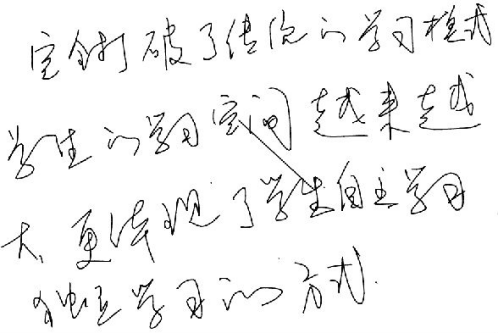 完全打破了传统的学习模式
学生的学习空间越来越
大,更体现了学生自主学习
独立学习的方式.